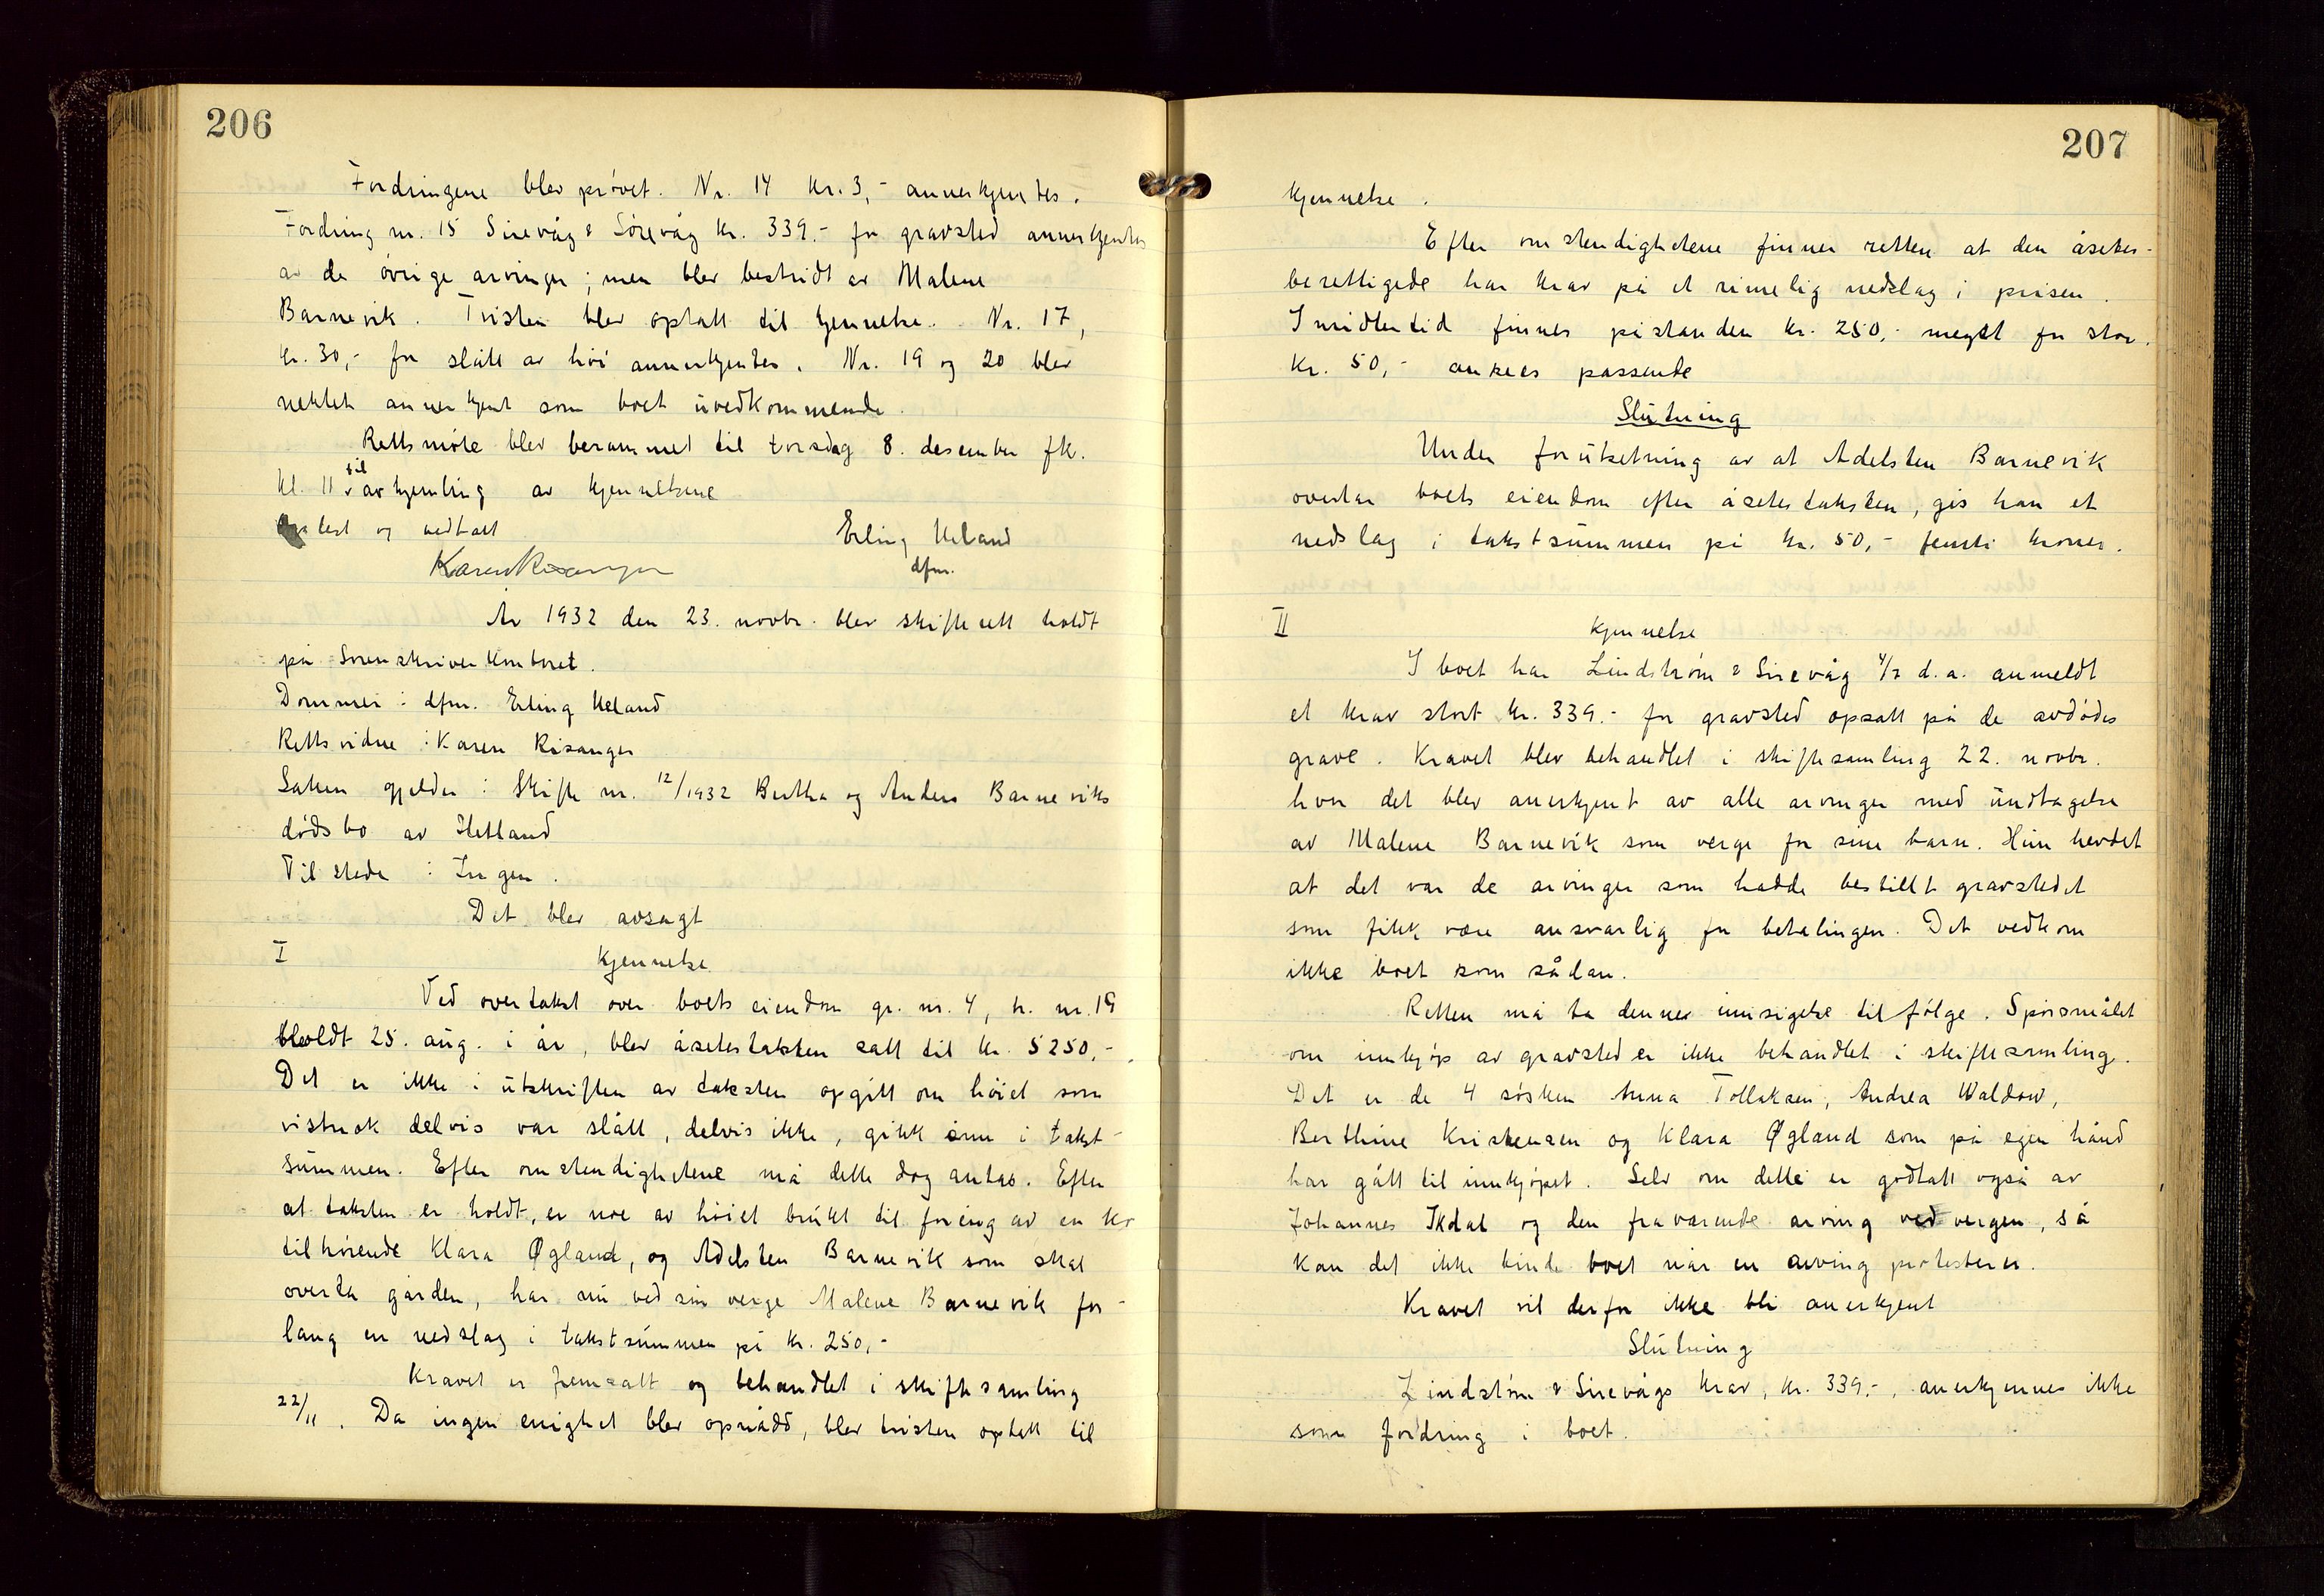 206
Fordringene blev prøvet. Nr. 14 kr. 3,- annerkjentes.
Fordring nr. 15 Sirevåg & Sørevåg kr. 339.- for gravsted annerkjentes
av de øvrige arvinger; men blev bestridt av Malene
Barnevik. Tvisten blev optatt til kjennelse. Nr. 17,
kr. 30,- for slått av høi annerkjentes. Nr. 19 og 20 blev
nektet annerkjent som boet uvedkommende.
Rettsmøte blev berammet til torsdag 8. desember fk.
kl. 11 til avkjenling av kjennelsene
Oplest og vedtatt
Erling Ueland
dfm.
Karen Risanger
År 1932 den 23. novbr. blev skifterett holdt
på Sorenskriverkontoret.
Dommer: dfm. Erling Ueland
Rettsvidne: Karen Risanger
Saken gjelder: Skifte nr. 12/1932 Bertha og Anders Barneviks
dødsbo av Hetland
Tilstede: Ingen.
Det blev avsagt
I
Kjennelse
Ved overtakst over boets eiendom gr. nr. 4, br. nr. 19
holdt 25. aug. i år, blev åsetestaksten satt til kr. 5250,-.
Det er ikke i utskriften av taksten opgitt om høiet som
vistnok delvis var slått, delvis ikke, gikk inn i takst-
summen. Efter omstendighetene må dette dog antas. Efter
at taksten er holdt, er noe av høiet brukt til foring av en ku
tilhørende Klara Øgland, og Adelsten Barnevik som skal
overta gården, har nu ved sin verge Malene Barnevik for-
lang en nedslag i takstsummen på kr. 250,-
Kravet er fremsatt og behandlet i skiftesamling
22/11. Da ingen enighet blev opnådd, blev tvisten optatt til
207
kjennelse.
Efter omstendighetene finner retten at den åsetes-
berettigede har krav på et rimelig nedslag i prisen.
Imidlertid finnes påstanden kr. 250,- meget for stor.
Kr. 50,- ansees passende
Slutning
Under forutsetning av at Adelsten Barnevik
overtar boets eiendom efter åsetestaksten, gis han et
nedslag i takstsummen på kr. 50,- femti kroner.
II
Kjennelse
I boet har Lindstrøm & Sirevåg 4/7 d.a. anmeldt
et krav stort kr. 339.- for gravsted opsatt på de avdødes
grave. Kravet blev behandlet i skiftesamling 22. novbr.
hvor det blev anerkjent av alle arvinger med undtagelse
av Malene Barnevik som verge for sine barn. Hun hevdet
at det var de arvinger som hadde bestillt gravstedet
som fikk være ansvarlig for betalingen. Det vedkom
ikke boet som sådan.
Retten må ta dennes innsigelse til følge. Spørsmålet
om innkjøp av gravsted er ikke behandlet i skiftesamling.
Det er de 4 søsken Anna Tollaksen, Andrea Waldow,
Berthine Kristensen og Klara Øgland som på egen hånd
har gått til innkjøpet. Selv om dette er godtatt også av
Johannes Ikdal og den fraværende arving ved vergen, så
kan det ikke binde boet når en arving protesterer.
Kravet vil derfor ikke bli anerkjent
Slutning
Lindstøm & Sirevågs krav, kr. 339,-, anerkjennes ikke
som fordring i boet.